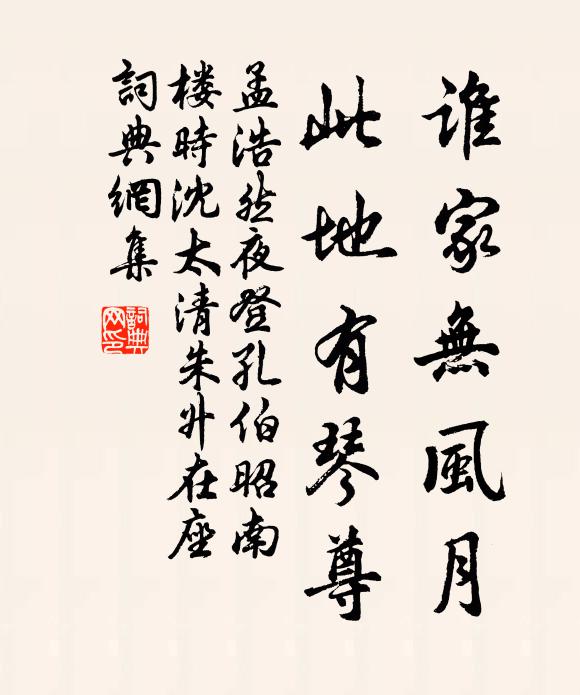 谁家無風月
此地有琴尊
孟浩然夜登孔伯昭南
楼時沈太清朱升在座
詞典網集
詞典网印